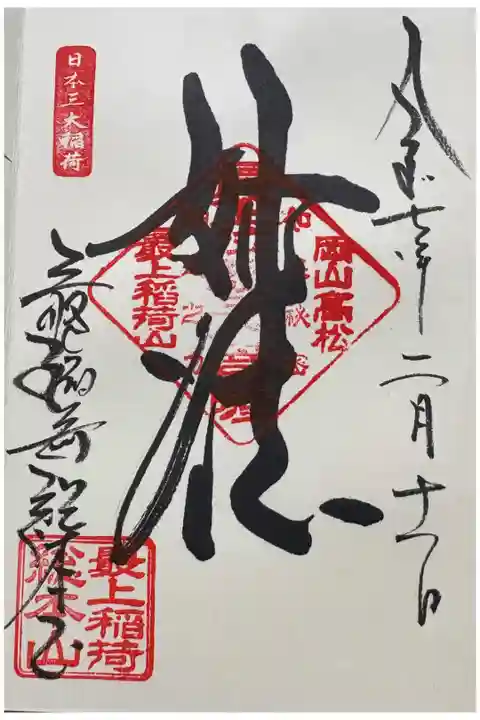 令和七年二月十一日
妙法
岡山高松
最上稲荷山
日本三大稲荷
最上稲荷総本山
最上稲荷
総本山